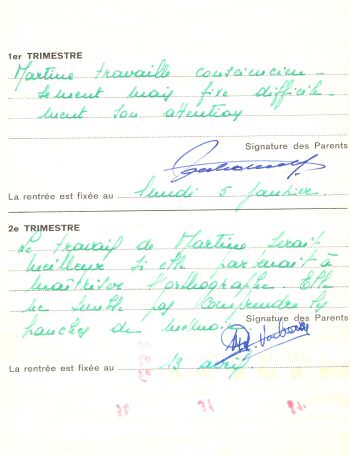 1er TRIMESTRE
Martine travaille consciencieu-
sement mais fixe difficile-
ment son attention
Signature des Parents
La rentrée est fixée au lundi 5 janvier.
2e TRIMESTRE
Le travail de Martine serait
meilleur si elle parvenait à
maîtriser l'orthographe. Elle
ne semble pas comprendre les
Signature des Parents
La rentrée est fixée au 13 avril